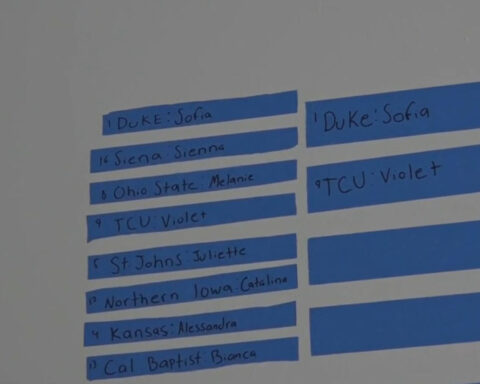 1 DUKE: Sofia
16 Siena: Sienna
8 Ohio State: Melanie
9 TCU: Violet
5 St Johns: Juliette
12 Northern Iowa: Catalina
4 Kansas: Alessandra
13 Cal Baptist: Bianca
1 Duke: Sofia
9 TCU: Violet